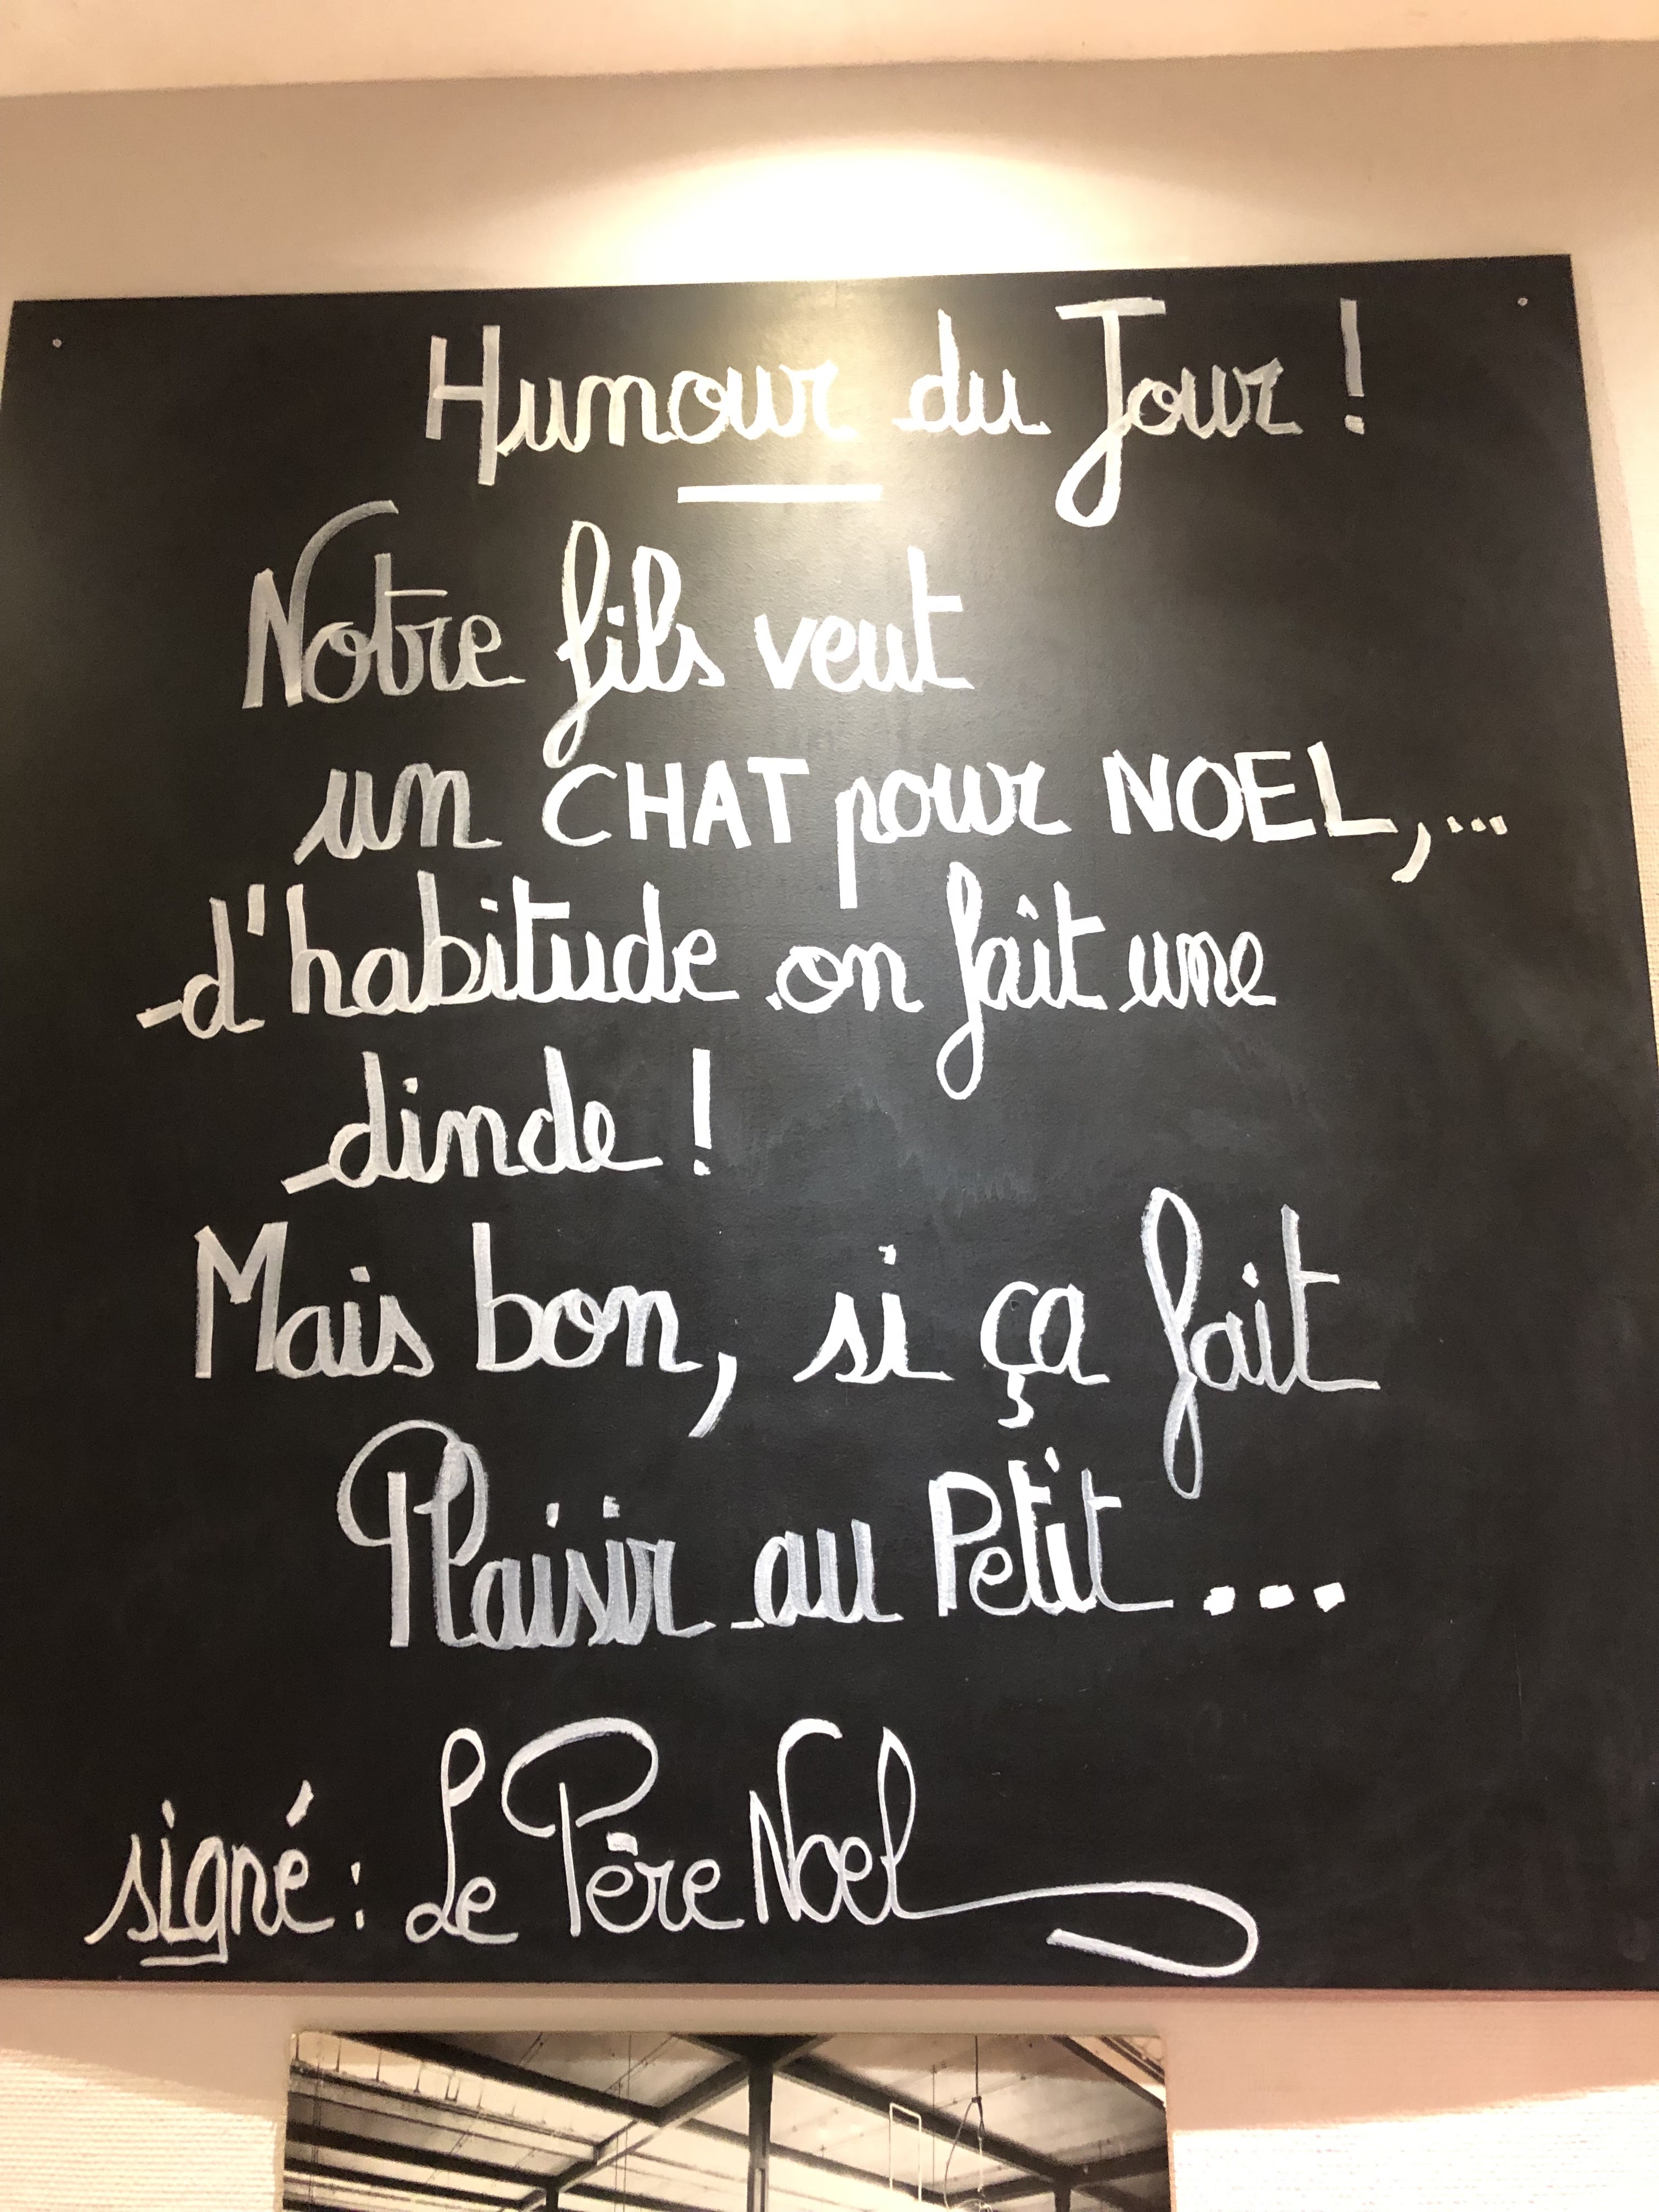 Humour du Jour !
Notre fils veut
un CHAT pour NOEL,...
d'habitude on fait une
dinde !
Mais bon, si ça fait
Plaisir au Petit...
signé : Le Père Noel